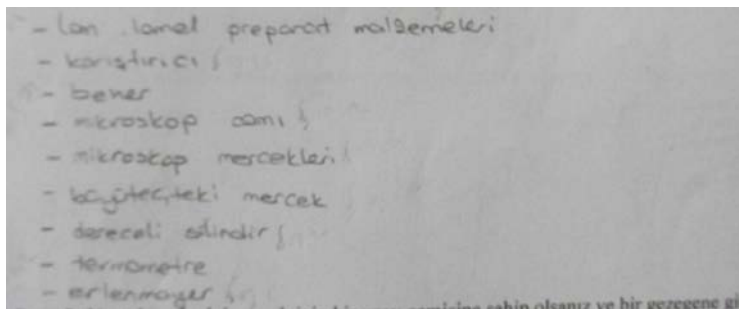 - lam lamel preparart malzemeleri
- karıştırıcı
- beher
- mikroskop camı
- mikroskop mercekleri
- büyüteçteki mercek
- dereceli silindir
- termometre
- erlenmayer
sahip olsanız ve bir gezegene gi